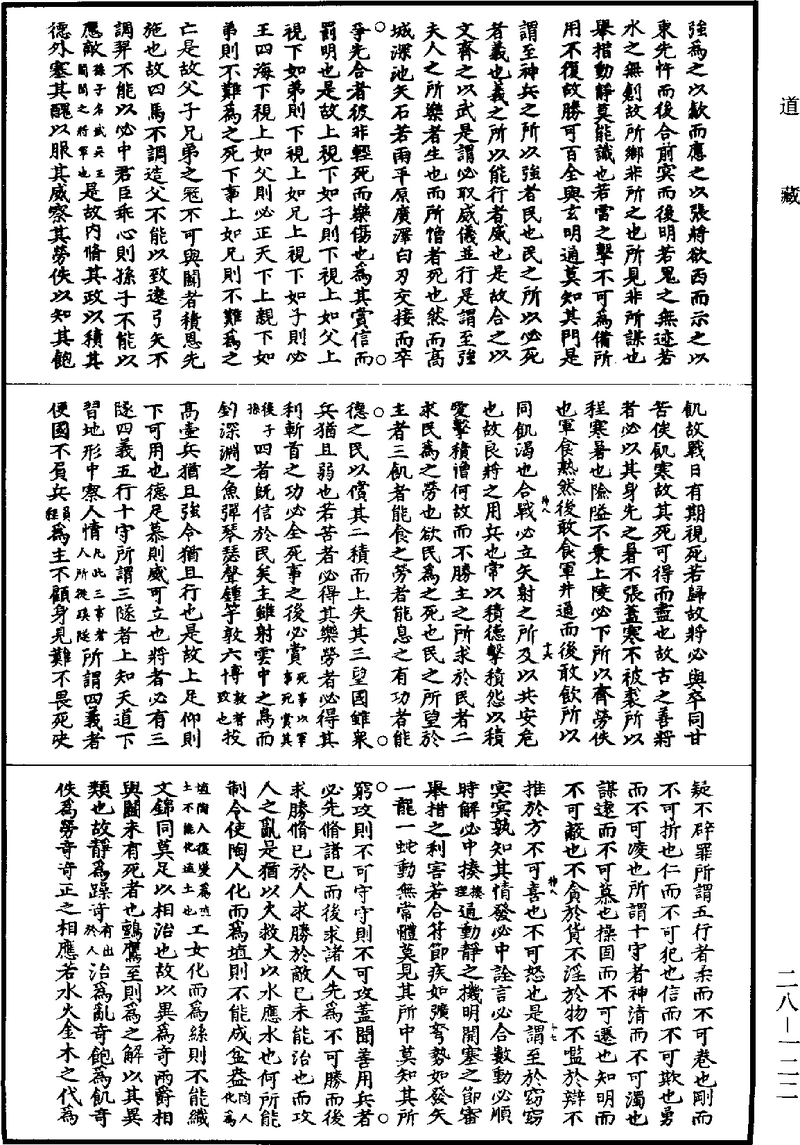 道藏
強爲之以歙而應之以張將欲西而示之以
東先忤而後合前冥而後明若鬼之無迹若
水之無創故所鄉非所之也所見非所謀也
舉措動靜莫能識也若雷之擊不可爲備所
用不復故勝可百全與玄明通莫知其門是
謂至神兵之所以強者民也民之所以必死
者義也義之所以能行者威也是故合之以
文齊之以武是謂必取威儀並行是謂至強
夫人之所樂者生也而所憎者死也然而高
城深池矢石若雨平原廣澤白刃交接而卒
爭先合者彼非輕死而樂傷也爲其賞信而
罰明也是故上視下如子則下視上如父上
視下如弟則下視上如兄上視下如子則必
王四海下視上如父則必正天下上親下如
弟則不難爲之死下事上如兄則不難爲之
亡是故父子兄弟之寇不可與鬭者積恩先
施也故四馬不調造父不能以致遠弓矢不
調羿不能以必中君臣乖心則孫子不能以
應敵孫子名武吳王闔閭之將軍也是故內脩其政以積其
德外塞其醜以服其威察其勞佚以知其飽
飢故戰日有期視死若歸故將必與卒同甘
苦俟飢寒故其死可得而盡也故古之善將
者必以其身先之暑不張蓋寒不被裘所以
程寒暑也險隘不乘上陵必下所以齊勞佚
也軍食熟然後敢食軍井通而後敢飲所以
同飢渴也合戰必立矢射之所及以共安危
也故良將之用兵也常以積德擊積怨以積
愛擊積憎何故而不勝主之所求於民者二
求民爲之勞也欲民爲之死也民之所望於
主者三飢者能食之勞者能息之有功者能
德之民以償其二積而上失其三望國雖衆
兵猶且弱也若苦者必得其樂勞者必得其
利斬首之功必全死事之後必賞死事以軍事死賞其後子孫四者既信於民矣主雖射雲中之鳥而
釣深淵之魚彈琴瑟聲鍾竽敦六博敦者致也投
高壺兵猶且強令猶且行也是故上足仰則
下可用也德足慕則威可立也將者必有三
隧四義五行十守所謂三隧者上知天道下
習地形中察人情凡此三事者人所從蹊隧所謂四義者
便國不負兵負程爲主不顧身見難不畏死决
疑不辟罪所謂五行者柔而不可卷也剛而
不可折也仁而不可犯也信而不可欺也勇
而不可凌也所謂十守者神清而不可濁也
謀遠而不可慕也操固而不可遷也知明而
不可蔽也不貪於貨不淫於物不嚂於辯不
推於方不可喜也不可怒也是謂至於窈窈
冥冥孰知其情發必中詮言必合數動必順
時解必中揍揍理通動靜之機明開塞之節審
舉措之利害若合符節疾如彍弩勢如發矢
一龍一蛇動無常體莫見其所中莫知其所
窮攻則不可守守則不可攻蓋聞善用兵者
必先脩諸已而後求諸人先爲不可勝而後
求勝脩已於人求勝於敵已未能治也而攻
人之亂是猶以火救火以水應水也何所能
制今使陶人化而爲埴則不能成盆盎陶人化爲埴陶人復變爲埴土不能化埴土也工女化而爲絲則不能織
文錦同莫足以相治也故以異爲奇兩爵相
與鬭未有死者也鸇鷹至則爲之解以其異
類也故靜爲躁奇有出於人治爲亂奇飽爲飢奇
佚爲勞奇奇正之相應若水火金木之代爲
二八—一二二